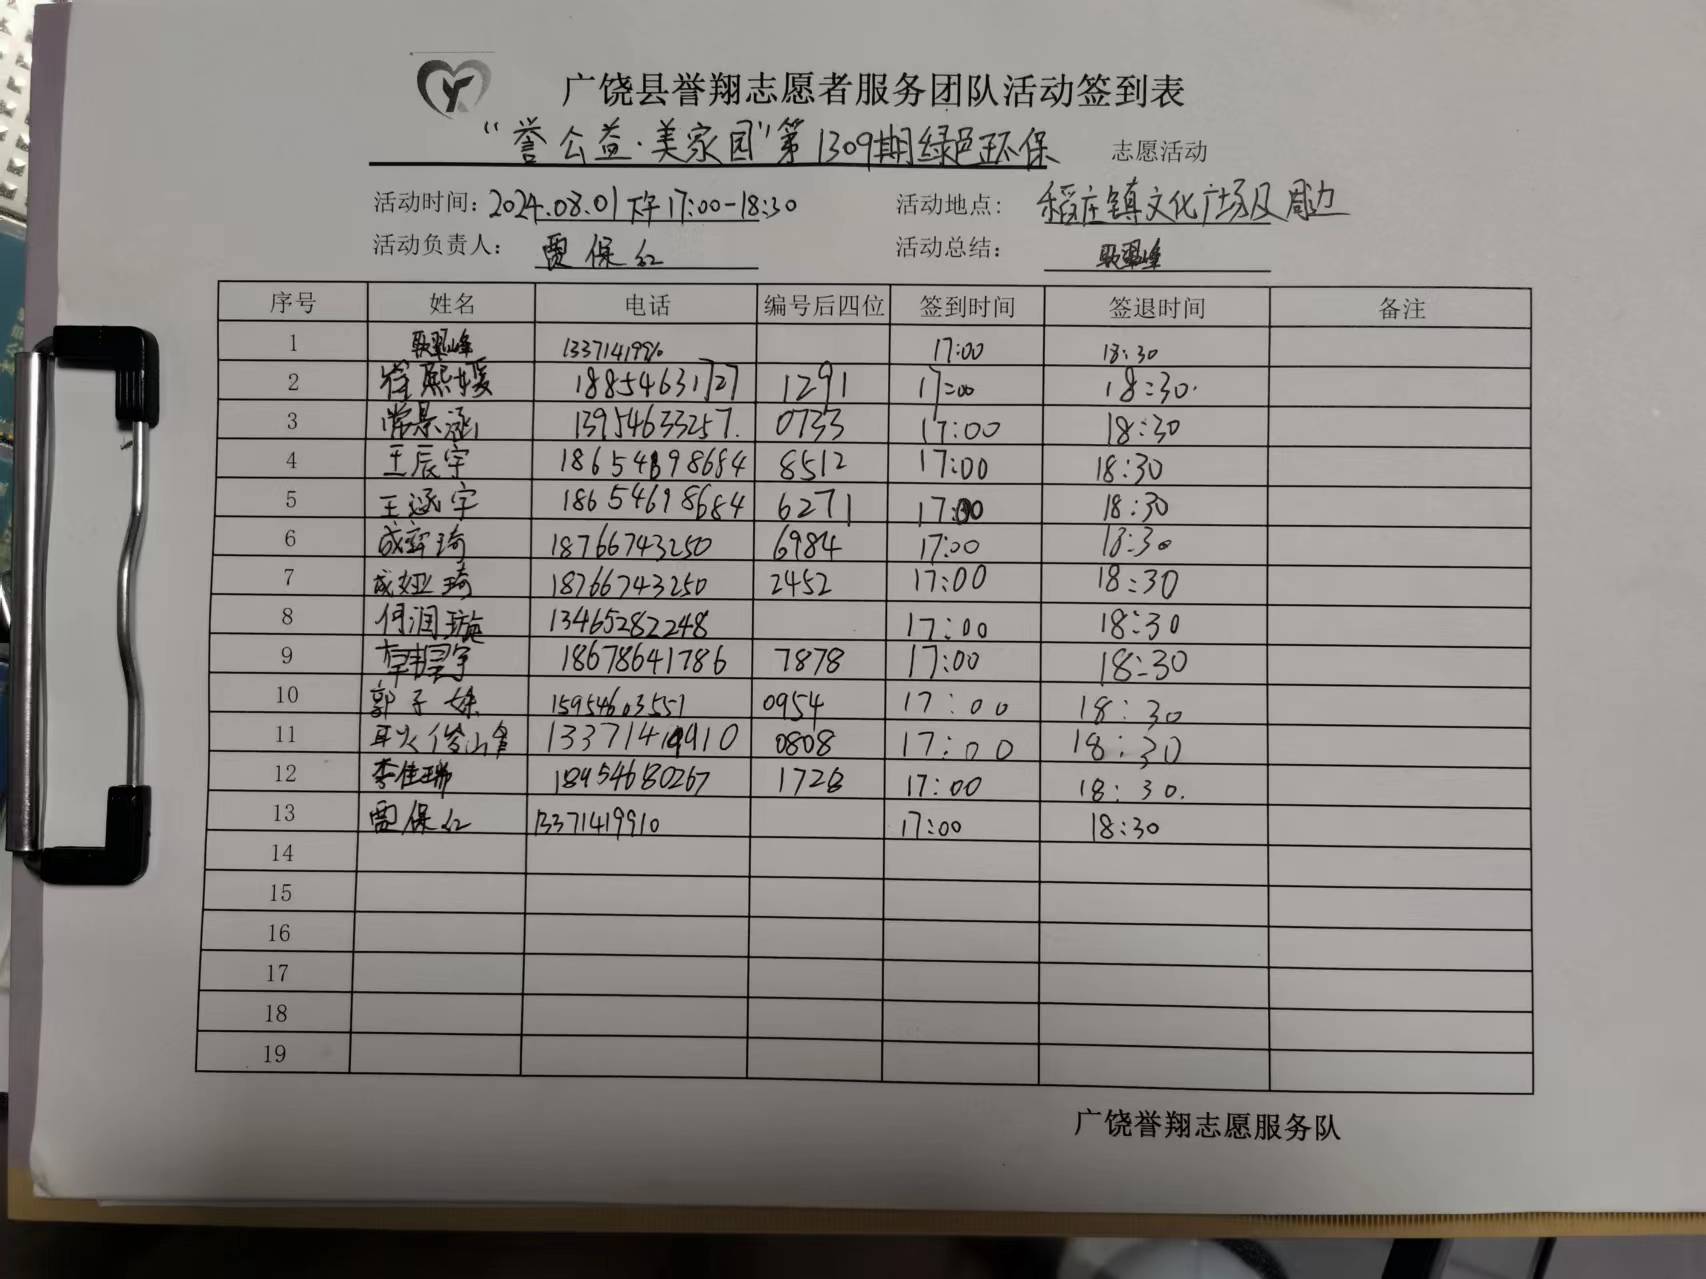 广饶县誉翔志愿者服务团队活动签到表
“誉公益·美家园”第1309期绿色环保 志愿活动
活动时间: 2024.08.01 下午17:00-18:30 活动地点: 稻庄镇文化广场及周边
活动负责人: 贾保红 活动总结:
序号 姓名 电话 编号后四位 签到时间 签退时间 备注
1 17:00 18:30
2 18854631727 1291 17:00 18:30.
3 常景涵 13954633257. 0733 17:00 18:30
4 王辰宇 18654698684 8512 17:00 18:30
5 王涵宇 18654698684 6271 17:00 18:30
6 成 琦 18766743250 6984 17:00 18:30
7 成娅琦 18766743250 2452 17:00 18:30
8 何润璇 13465282248 17:00 18:30
9 18678641786 7878 17:00 18:30
10 郭子 15954603551 0954 17:00 18:30
11 耿俊 13371419910 0808 17:00 18:30
12 李佳瑞 18954680267 1728 17:00 18:30.
13 贾保红 13371419910 17:00 18:30
14
15
16
17
18
19
广饶誉翔志愿服务队